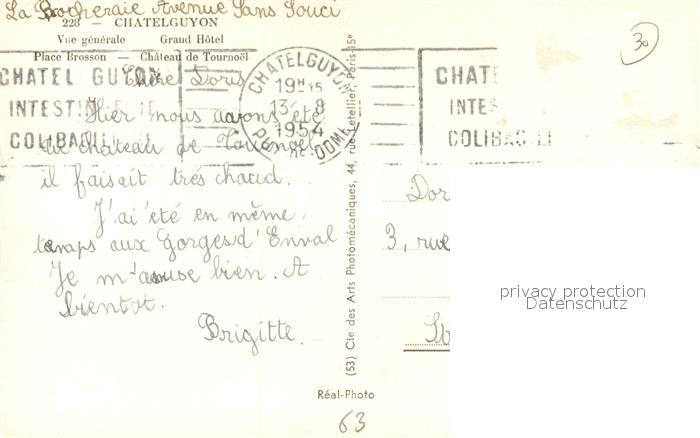 La Rocheraie Avenue Sans Souci
228 — CHATELGUYON
Vue générale Grand Hôtel
Place Brosson — Château de Tournoël
CHATEL GUYON
INTESTIN
COLIBACILL
CHATELGUYON
19H15
13 8
1954
PUY DE DOME
CHAT
INTES
COLIBACILLI
30
Chère Doris
Hier nous avons été
au château de Tournoel
il faisait très chaud.
J'ai été en même
temps aux Gorges d'Enval
Je m'amuse bien. A
bientot.
Brigitte.
(53) Cie des Arts Photomécaniques, 44, rue Letellier, Paris-15e
Dor
3, rue
St
privacy protection
Datenschutz
Réal-Photo
63